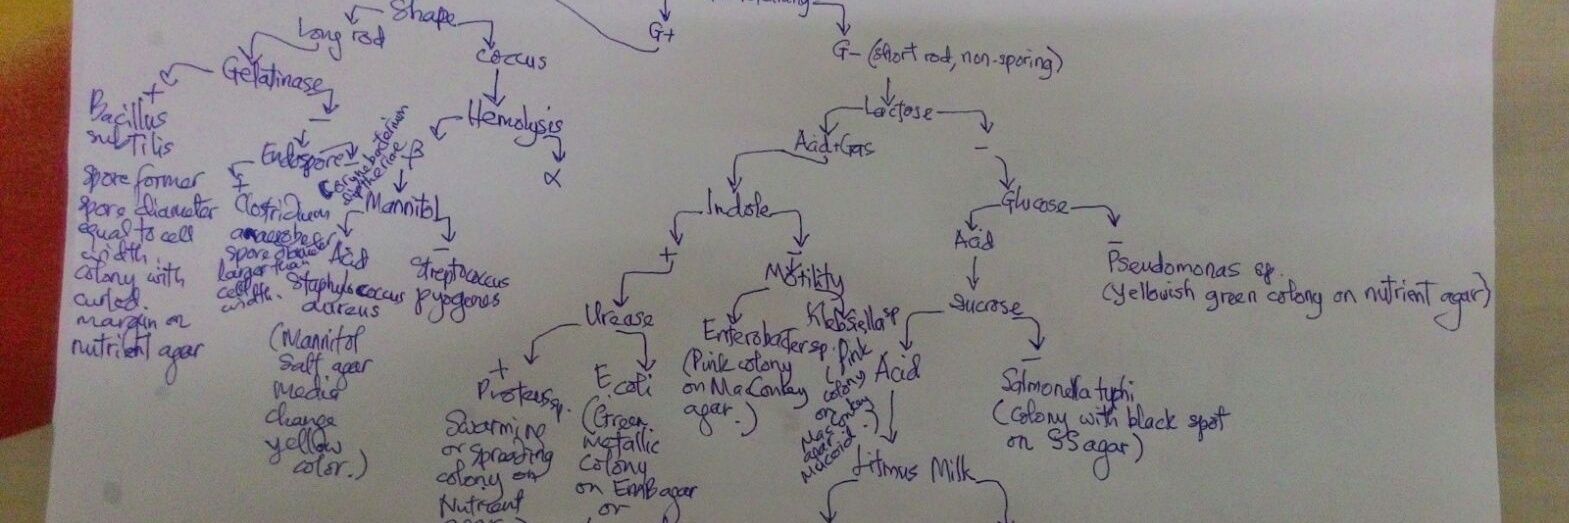 Shape
G+
G- (short rod, non-sporing)
Long rod
coccus
Gelatinase
Hemolysis
Lactose
+
-
β
α
Acid+Gas
-
Bacillus
subtilis
spore former
spore diameter
equal to cell
width.
colony with
curled.
margin on
nutrient agar
Endospore
+
-
Clostridium
anaerobe
spore
larger than
cell
width.
Corynebacterium
diptheriae
Mannitol
Acid
-
Staphylococcus
aureus
(Mannitol
Salt agar
media
change
yellow
color.)
Streptococcus
pyogenes
Indole
+
-
Urease
+
Proteus sp.
Swarming
or spreading
colony on
Nutrient
E.coli
(Green
metallic
colony
on EMB agar
or
Motility
Enterobacter sp.
(Pink colony
on MaConkey
agar.)
Klebsiella sp
(pink
colony
on
MacConkey
agar
Mucoid.)
Glucose
Acid
-
Pseudomonas sp.
(yellowish green colony on nutrient agar)
Sucrose
Acid
-
Salmonella typhi
(Colony with black spot
on SS agar)
Litmus Milk